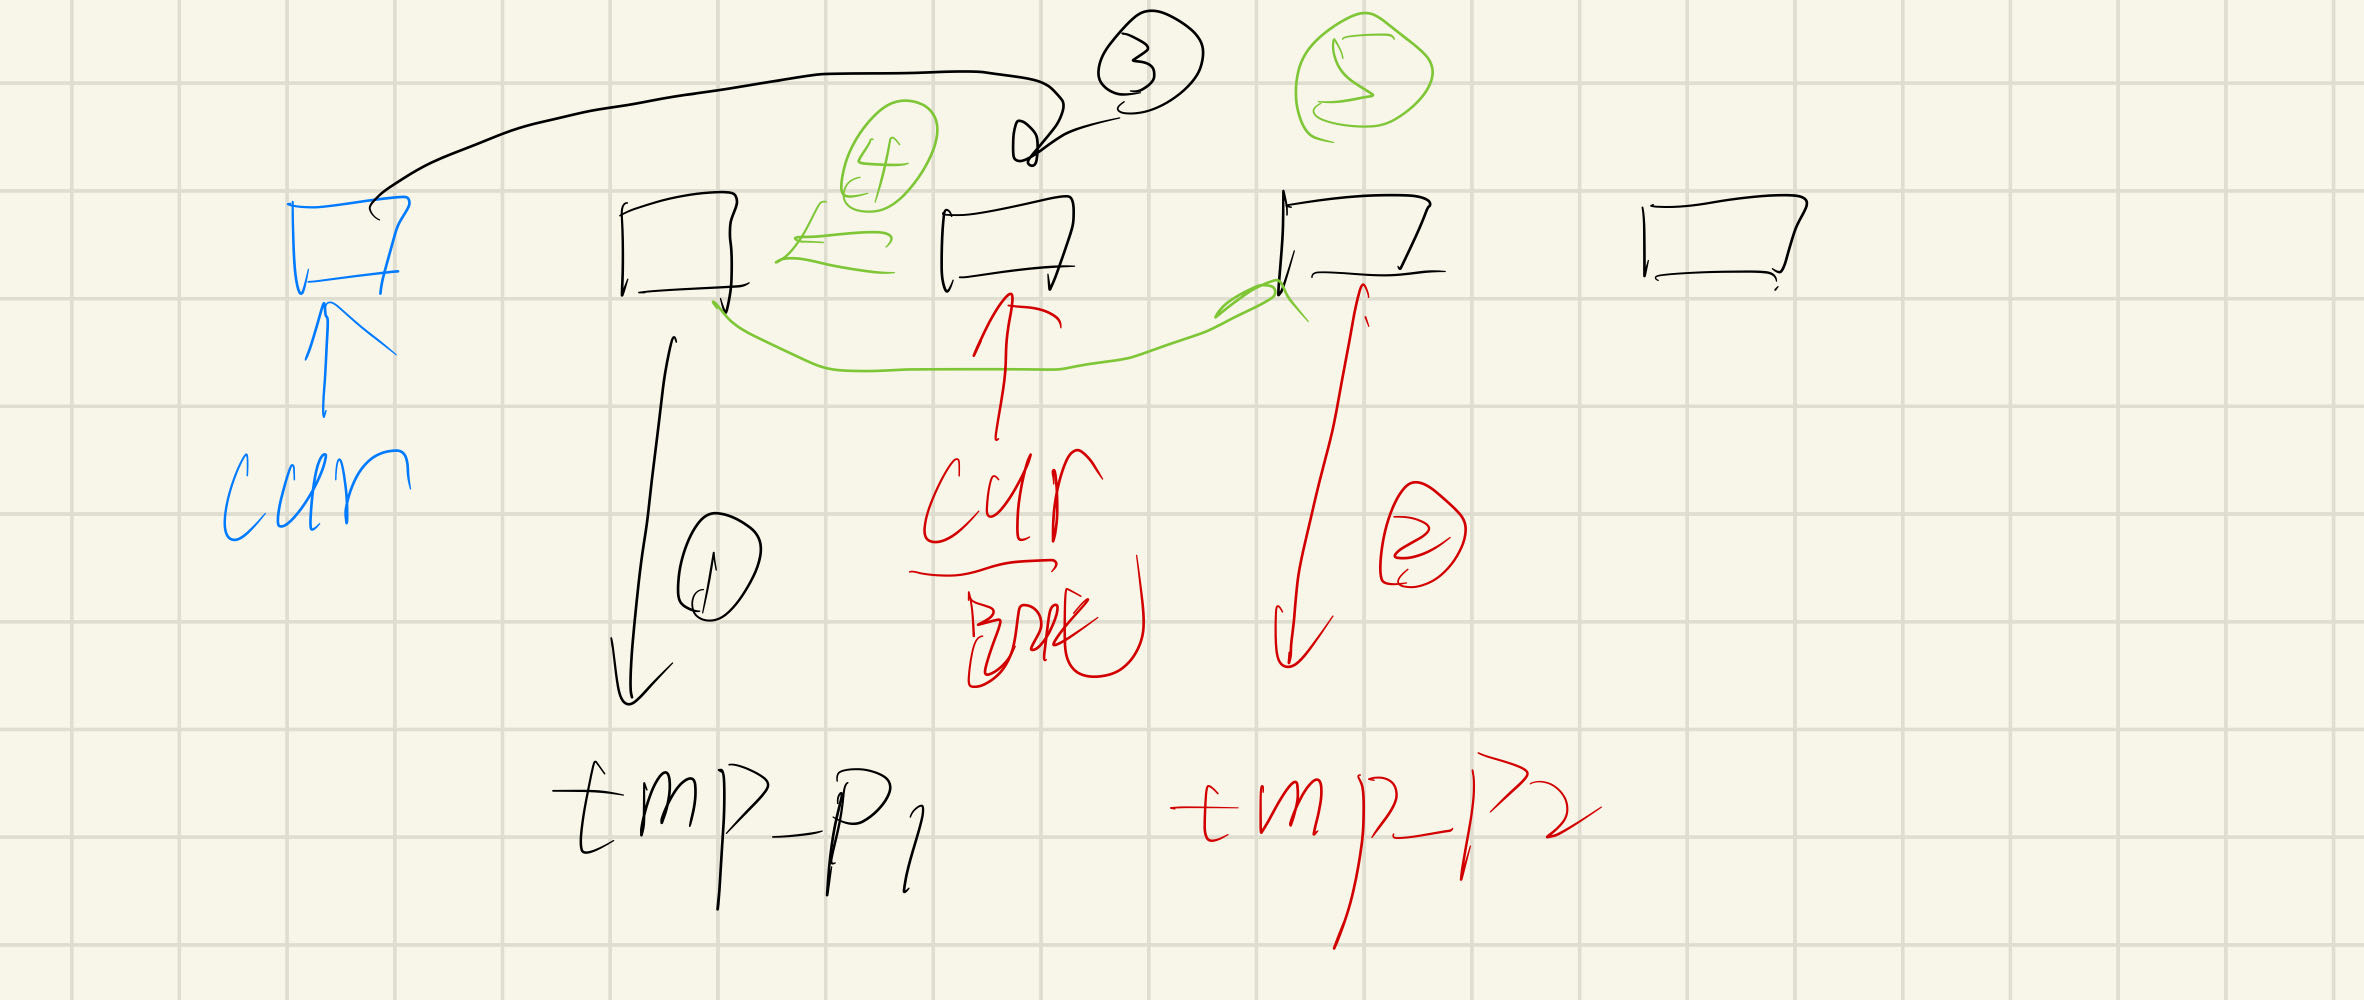 ③ ⑤
④
cur cur
① ②
tmp_p1 tmp_p2